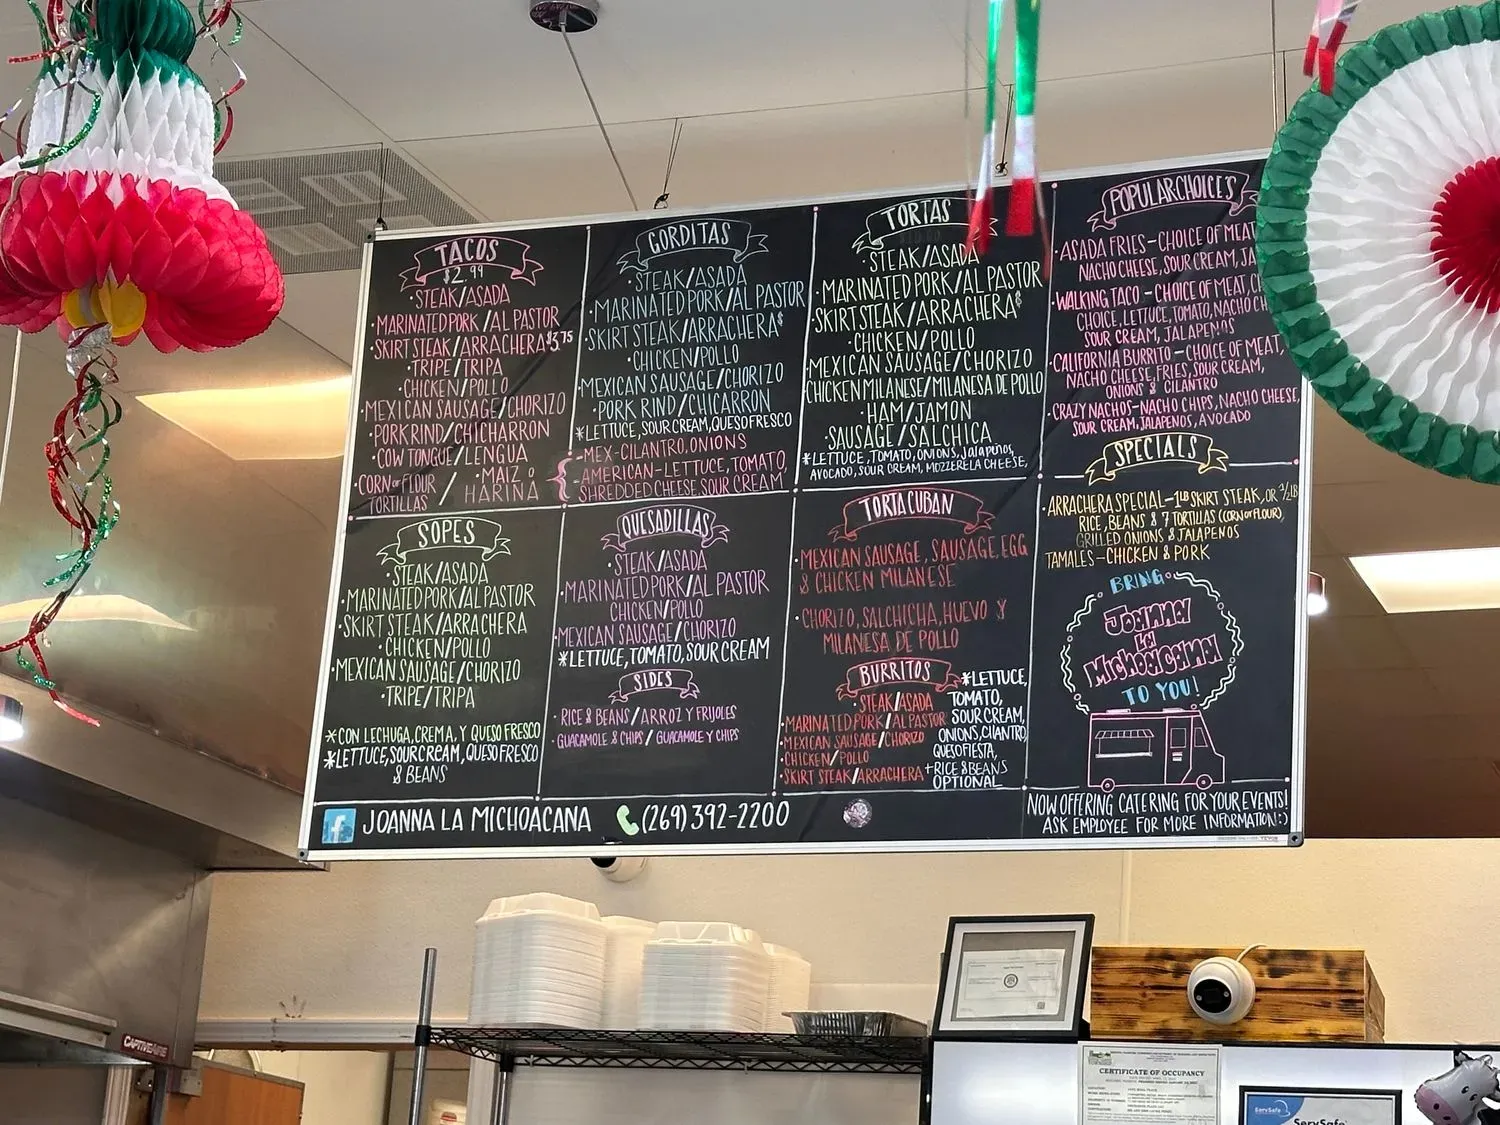 TACOS
$2.99
·STEAK/ASADA
·MARINATED PORK/AL PASTOR
·SKIRT STEAK/ARRACHERA $3.75
·TRIPE/TRIPA
·CHICKEN/POLLO
·MEXICAN SAUSAGE/CHORIZO
·PORK RIND/CHICHARRON
·COW TONGUE/LENGUA
·CORN OR FLOUR TORTILLAS / ·MAIZ O HARINA
GORDITAS
·STEAK/ASADA
·MARINATED PORK/AL PASTOR
·SKIRT STEAK/ARRACHERA$
·CHICKEN/POLLO
·MEXICAN SAUSAGE/CHORIZO
·PORK RIND/CHICARRON
*LETTUCE, SOUR CREAM, QUESO FRESCO
-MEX-CILANTRO, ONIONS
-AMERICAN-LETTUCE, TOMATO,
SHREDDED CHEESE, SOUR CREAM
TORTAS
·STEAK/ASADA
·MARINATED PORK/AL PASTOR
·SKIRT STEAK/ARRACHERA$
·CHICKEN/POLLO
·MEXICAN SAUSAGE/CHORIZO
·CHICKEN MILANESE/MILANESA DE POLLO
·HAM/JAMON
·SAUSAGE/SALCHICA
*LETTUCE, TOMATO, ONIONS, Jalapuños,
AVOCADO, SOUR CREAM, MOZZERELA CHEESE,
POPULAR CHOICES
·ASADA FRIES-CHOICE OF MEAT
NACHO CHEESE, SOUR CREAM, JA
·WALKING TACO-CHOICE OF MEAT, CH
CHOICE, LETTUCE, TOMATO, NACHO CH
SOUR CREAM, JALAPENOS
·CALIFORNIA BURRITO-CHOICE OF MEAT,
NACHO CHEESE, FRIES, SOUR CREAM,
ONIONS & CILANTRO
·CRAZY NACHOS-NACHO CHIPS, NACHO CHEESE,
SOUR CREAM, JALAPENOS, AVOCADO
SPECIALS
·ARRACHERA SPECIAL-1LB SKIRT STEAK, OR 1/2LB
RICE, BEANS & 7 TORTILLAS (CORN OR FLOUR),
GRILLED ONIONS & JALAPENOS
TAMALES-CHICKEN & PORK
BRING
JOANNA
LA
MICHOACANA
TO YOU!
NOW OFFERING CATERING FOR YOUR EVENTS!
ASK EMPLOYEE FOR MORE INFORMATION:)
SOPES
·STEAK/ASADA
·MARINATED PORK/AL PASTOR
·SKIRT STEAK/ARRACHERA
·CHICKEN/POLLO
·MEXICAN SAUSAGE/CHORIZO
·TRIPE/TRIPA
*CON LECHUGA, CREMA, Y QUESO FRESCO
*LETTUCE, SOUR CREAM, QUESO FRESCO
& BEANS
QUESADILLAS
·STEAK/ASADA
·MARINATED PORK/AL PASTOR
CHICKEN/POLLO
·MEXICAN SAUSAGE/CHORIZO
*LETTUCE, TOMATO, SOUR CREAM
SIDES
·RICE & BEANS/ARROZ Y FRIJOLES
·GUACAMOLE & CHIPS/GUACAMOLE Y CHIPS
TORTA CUBAN
·MEXICAN SAUSAGE, SAUSAGE, EGG
& CHICKEN MILANESE
·CHORIZO, SALCHICHA, HUEVO &
MILANESA DE POLLO
BURRITOS
·STEAK/ASADA
·MARINATED PORK/AL PASTOR
·MEXICAN SAUSAGE/CHORIZO
·CHICKEN/POLLO
·SKIRT STEAK/ARRACHERA
*LETTUCE,
TOMATO,
SOUR CREAM,
ONIONS, CILANTRO,
QUESO FIESTA,
+RICE & BEANS
OPTIONAL
f JOANNA LA MICHOACANA (269)392-2200
CAPTIVEAIRE
CERTIFICATE OF OCCUPANCY
ServSafe
ServSafe